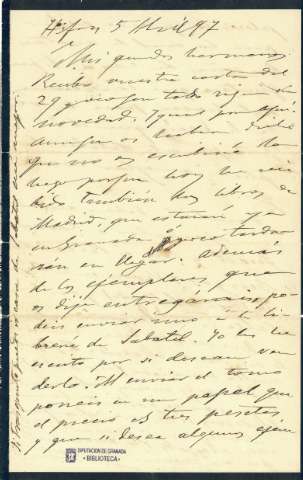 5 Abril 97
Mis queridos hermanos:
Recibo vuestra carta del
29 y veo que todo sigue sin
novedad. Igual por aquí
aunque os había dicho
que no os escribiría
luego porque hoy he reci
bido también los libros de
Madrid, que estarán ya
en Granada ó poco tarda
rán en llegar. Además
de los ejemplares que
os dije entregarais, po
deis enviar uno á la li
brería de Sabatel. Yo les
escribo por si desean ven
derlo. Al enviar el tomo
poneis en un papel que
el precio es tres pesetas
y que si desea algunos ejem
DIPUTACIÓN DE GRANADA
• BIBLIOTECA •
casa de Sabatel